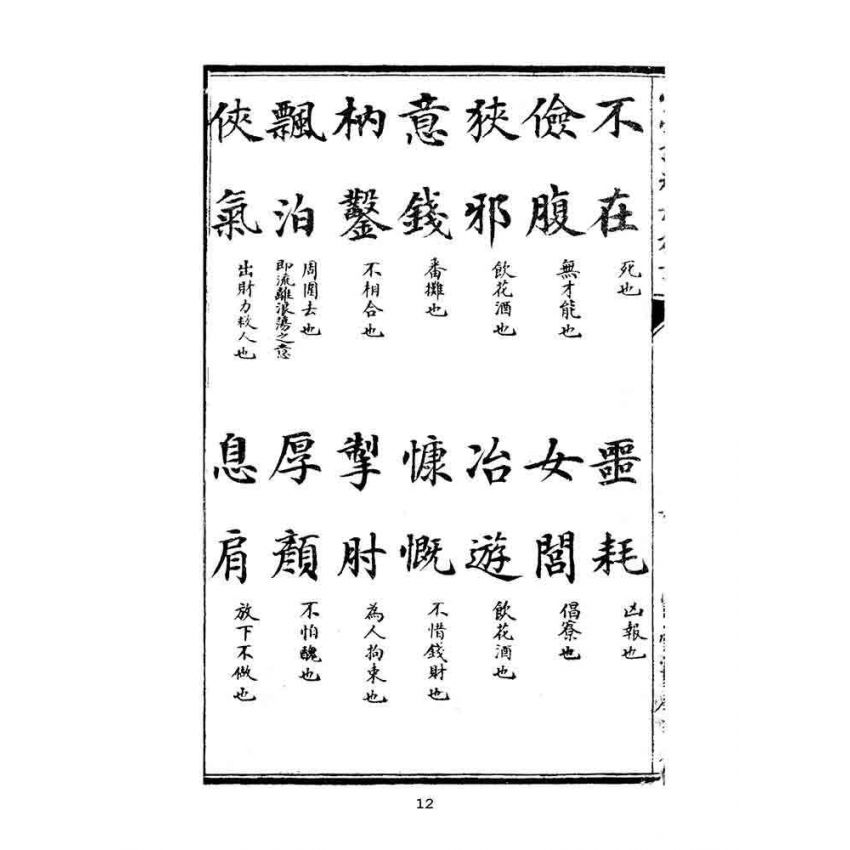 不在 死也
噩耗 凶報也
儉腹 無才能也
女閭 倡寮也
狹邪 飲花酒也
冶遊 飲花酒也
意錢 番攤也
慷慨 不惜錢財也
枘鑿 不相合也
掣肘 為人拘束也
飄泊 周圍去也
即流離浪蕩之意
厚顏 不怕醜也
俠氣 出財力救人也
息肩 放下不做也
12